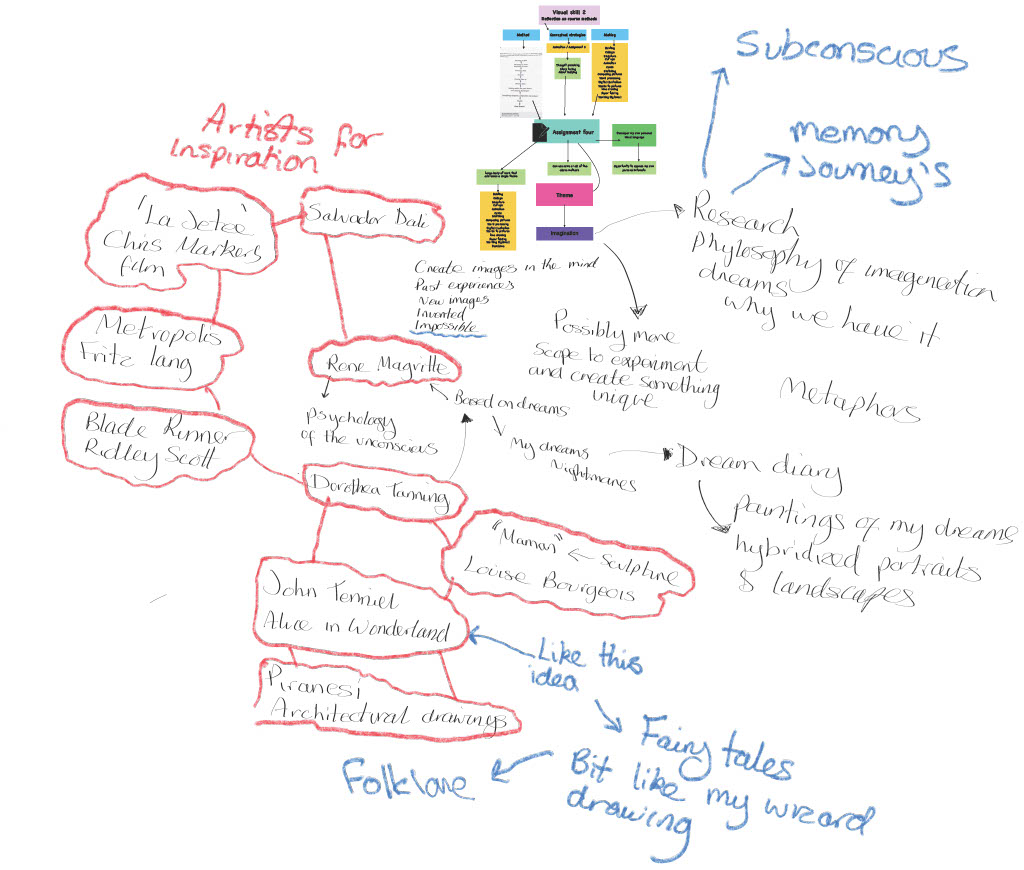 Visual skill 2
Reflection on course methods
Method
Conceptual strategies
Making
Assignment four
Theme
Imagination
Create images in the mind
Past experiences
New images
Invented
Impossible
Subconscious
memory
Journey's
Research
phylosophy of imageneation
dreams
why we have it
Possibly more
scope to experiment
and create something
unique
Metaphors
Artists for
inspiration
"La Jetee"
Chris Markers
film
Salvador Dali
Metropolis
Fritz lang
Blade Runner
Ridley Scott
Rene Magritte
psychology
of the unconscious
Based on dreams
My dreams
Nightmares
Dream diary
paintings of my dreams
hybridized portraits
& landscapes
Dorothea Tanning
"Maman" ← Sculpture
Louise Bourgeois
John Tenniel
Alice in Wonderland
Piranesi
Architectural drawings
Like this
idea
Fairy tales
Bit like my wizard
drawing
Folklore